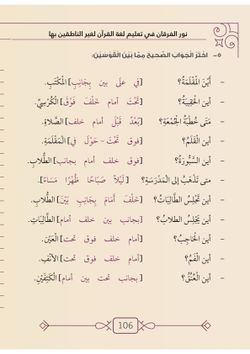 نور الفرقان في تعليم لغة القرآن لغير الناطقين بها
٥- اخْتَرْ الْجَوَابَ الصَّحِيحَ مِمَّا بَيْنَ الْقَوْسَيْنِ:
- أَيْنَ الْمِقْلَمَةُ؟ [في على بين بِجَانِبِ] الْمَكْتَبِ.
- أَيْنَ الْحَقِيبَةُ؟ [تَحْتَ أمام خَلْفَ فَوْقَ] الْكُرْسِيِّ.
- مَتى خُطْبَةُ الْجُمُعَةِ؟ [بَعْدَ قَبْلَ أمام خلف] الصَّلاةِ.
- أَيْنَ الْقَلَمُ؟ [فوق تَحْتَ - حَوْلَ في] الْمِقْلَمَةِ.
- أين السَّبُّورَةُ؟ [فوق أمام خلف بجانب] الطُّلابِ.
- متى تَذْهَبُ إلى الْمَدْرَسَةِ؟ [لَيْلاً صَبَاحًا ظُهْرًا مَسَاءً].
- أين تَجْلِسُ الطَّالِبَاتُ؟ [خَلْفَ أَمَامَ بِجَانِبِ بَيْنَ] الطُّلابِ.
- أين يَجْلِسُ الطلابُ؟ [بجانب بين خلف أمام] الطَّالِبَاتِ.
- أين الْحَاجِبُ؟ [أمام خلف فوق تحت] الْعَيْنِ.
- أين الْفَمُ؟ [أمام خلف فوق تحت] الأَنْفِ.
- أين الْعُنُقُ؟ [بجانب تحت بين أمام] الْكَتِفَيْنِ.
106